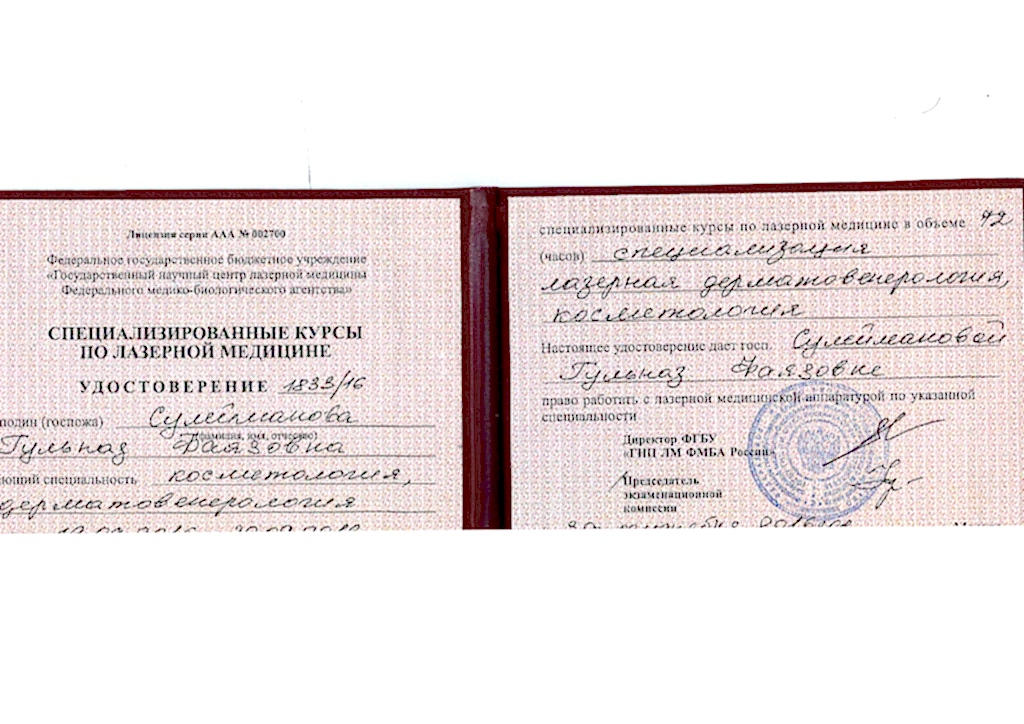 Лицензия серии ААА № 002700
Федеральное государственное бюджетное учреждение
«Государственный научный центр лазерной медицины
Федерального медико-биологического агентства»
СПЕЦИАЛИЗИРОВАННЫЕ КУРСЫ
ПО ЛАЗЕРНОЙ МЕДИЦИНЕ
УДОСТОВЕРЕНИЕ 1833/16
подин (госпожа) Сулейманова
(фамилия, имя, отчество)
Гульназ Фаязовна
ющий специальность косметология,
дерматовенерология
специализированные курсы по лазерной медицине в объеме 72
(часов) специализация
лазерная дерматовенерология,
косметология
Настоящее удостоверение дает госп. Сулеймановой
Гульназ Фаязовне
право работать с лазерной медицинской аппаратурой по указанной
специальности
Директор ФГБУ
«ГНЦ ЛМ ФМБА России»
Председатель
экзаменационной
комиссии